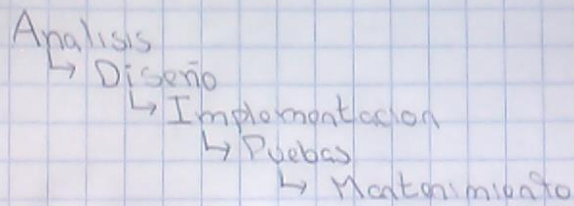 Analisis
↳ Diseño
↳ Implementacion
↳ Puebas
↳ Mantenimiento